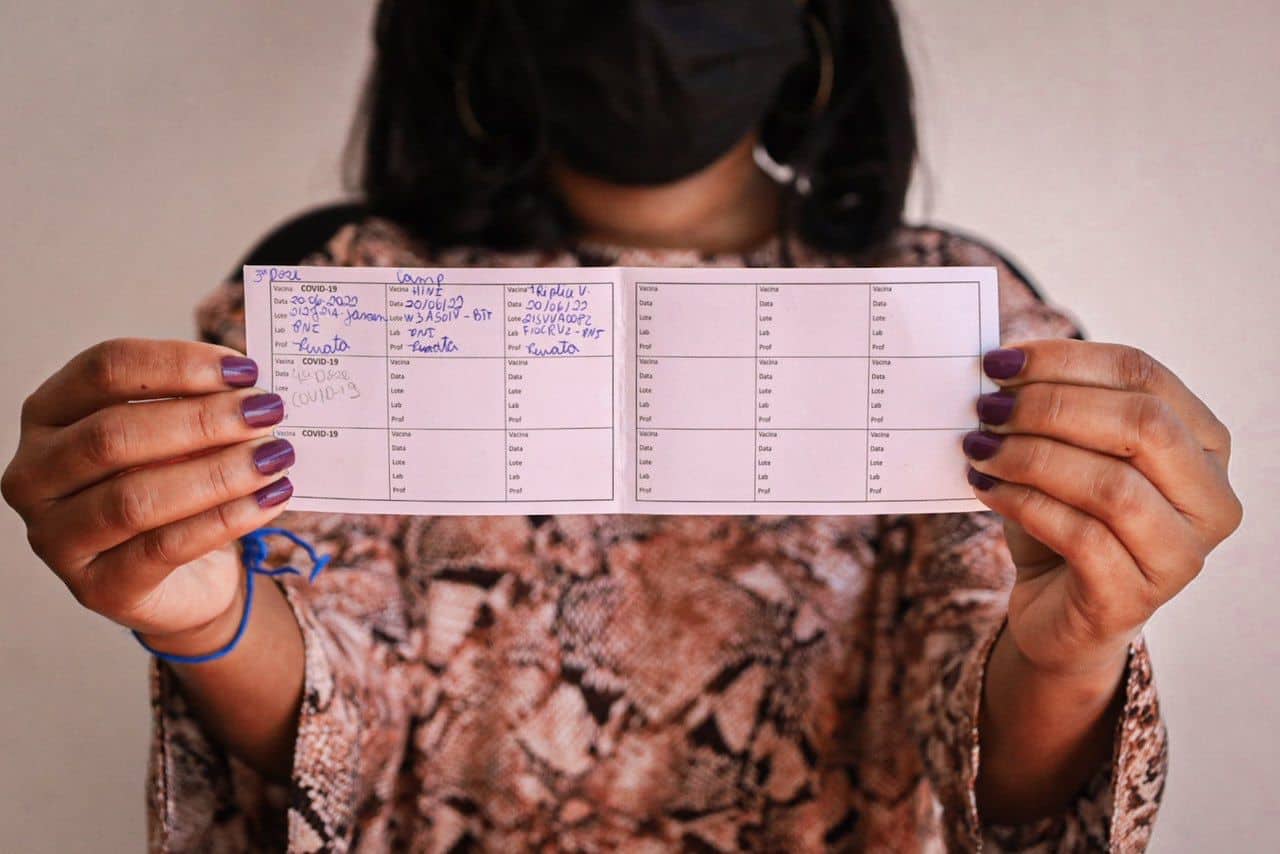 3ª Dose
Vacina COVID-19
Data 20-06-2022
Lote 212J21A-Janssen
Lab PNI
Prof Renata
Camp
Vacina H1N1
Data 20/06/22
Lote
Lab PNI
Prof Renata
Vacina Tríplice V.
Data 20/06/22
Lote
Lab FIOCRUZ-PNI
Prof Renata
Vacina
Data
Lote
Lab
Prof
Vacina
Data
Lote
Lab
Prof
Vacina
Data
Lote
Lab
Prof
Vacina COVID-19
Data 4ª Dose
Lote COVID-19
Vacina
Data
Lote
Lab
Prof
Vacina
Data
Lote
Lab
Prof
Vacina
Data
Lote
Lab
Prof
Vacina
Data
Lote
Lab
Prof
Vacina
Data
Lote
Lab
Prof
Vacina COVID-19
Vacina
Data
Lote
Lab
Prof
Vacina
Data
Lote
Lab
Prof
Vacina
Data
Lote
Lab
Prof
Vacina
Data
Lote
Lab
Prof
Vacina
Data
Lote
Lab
Prof